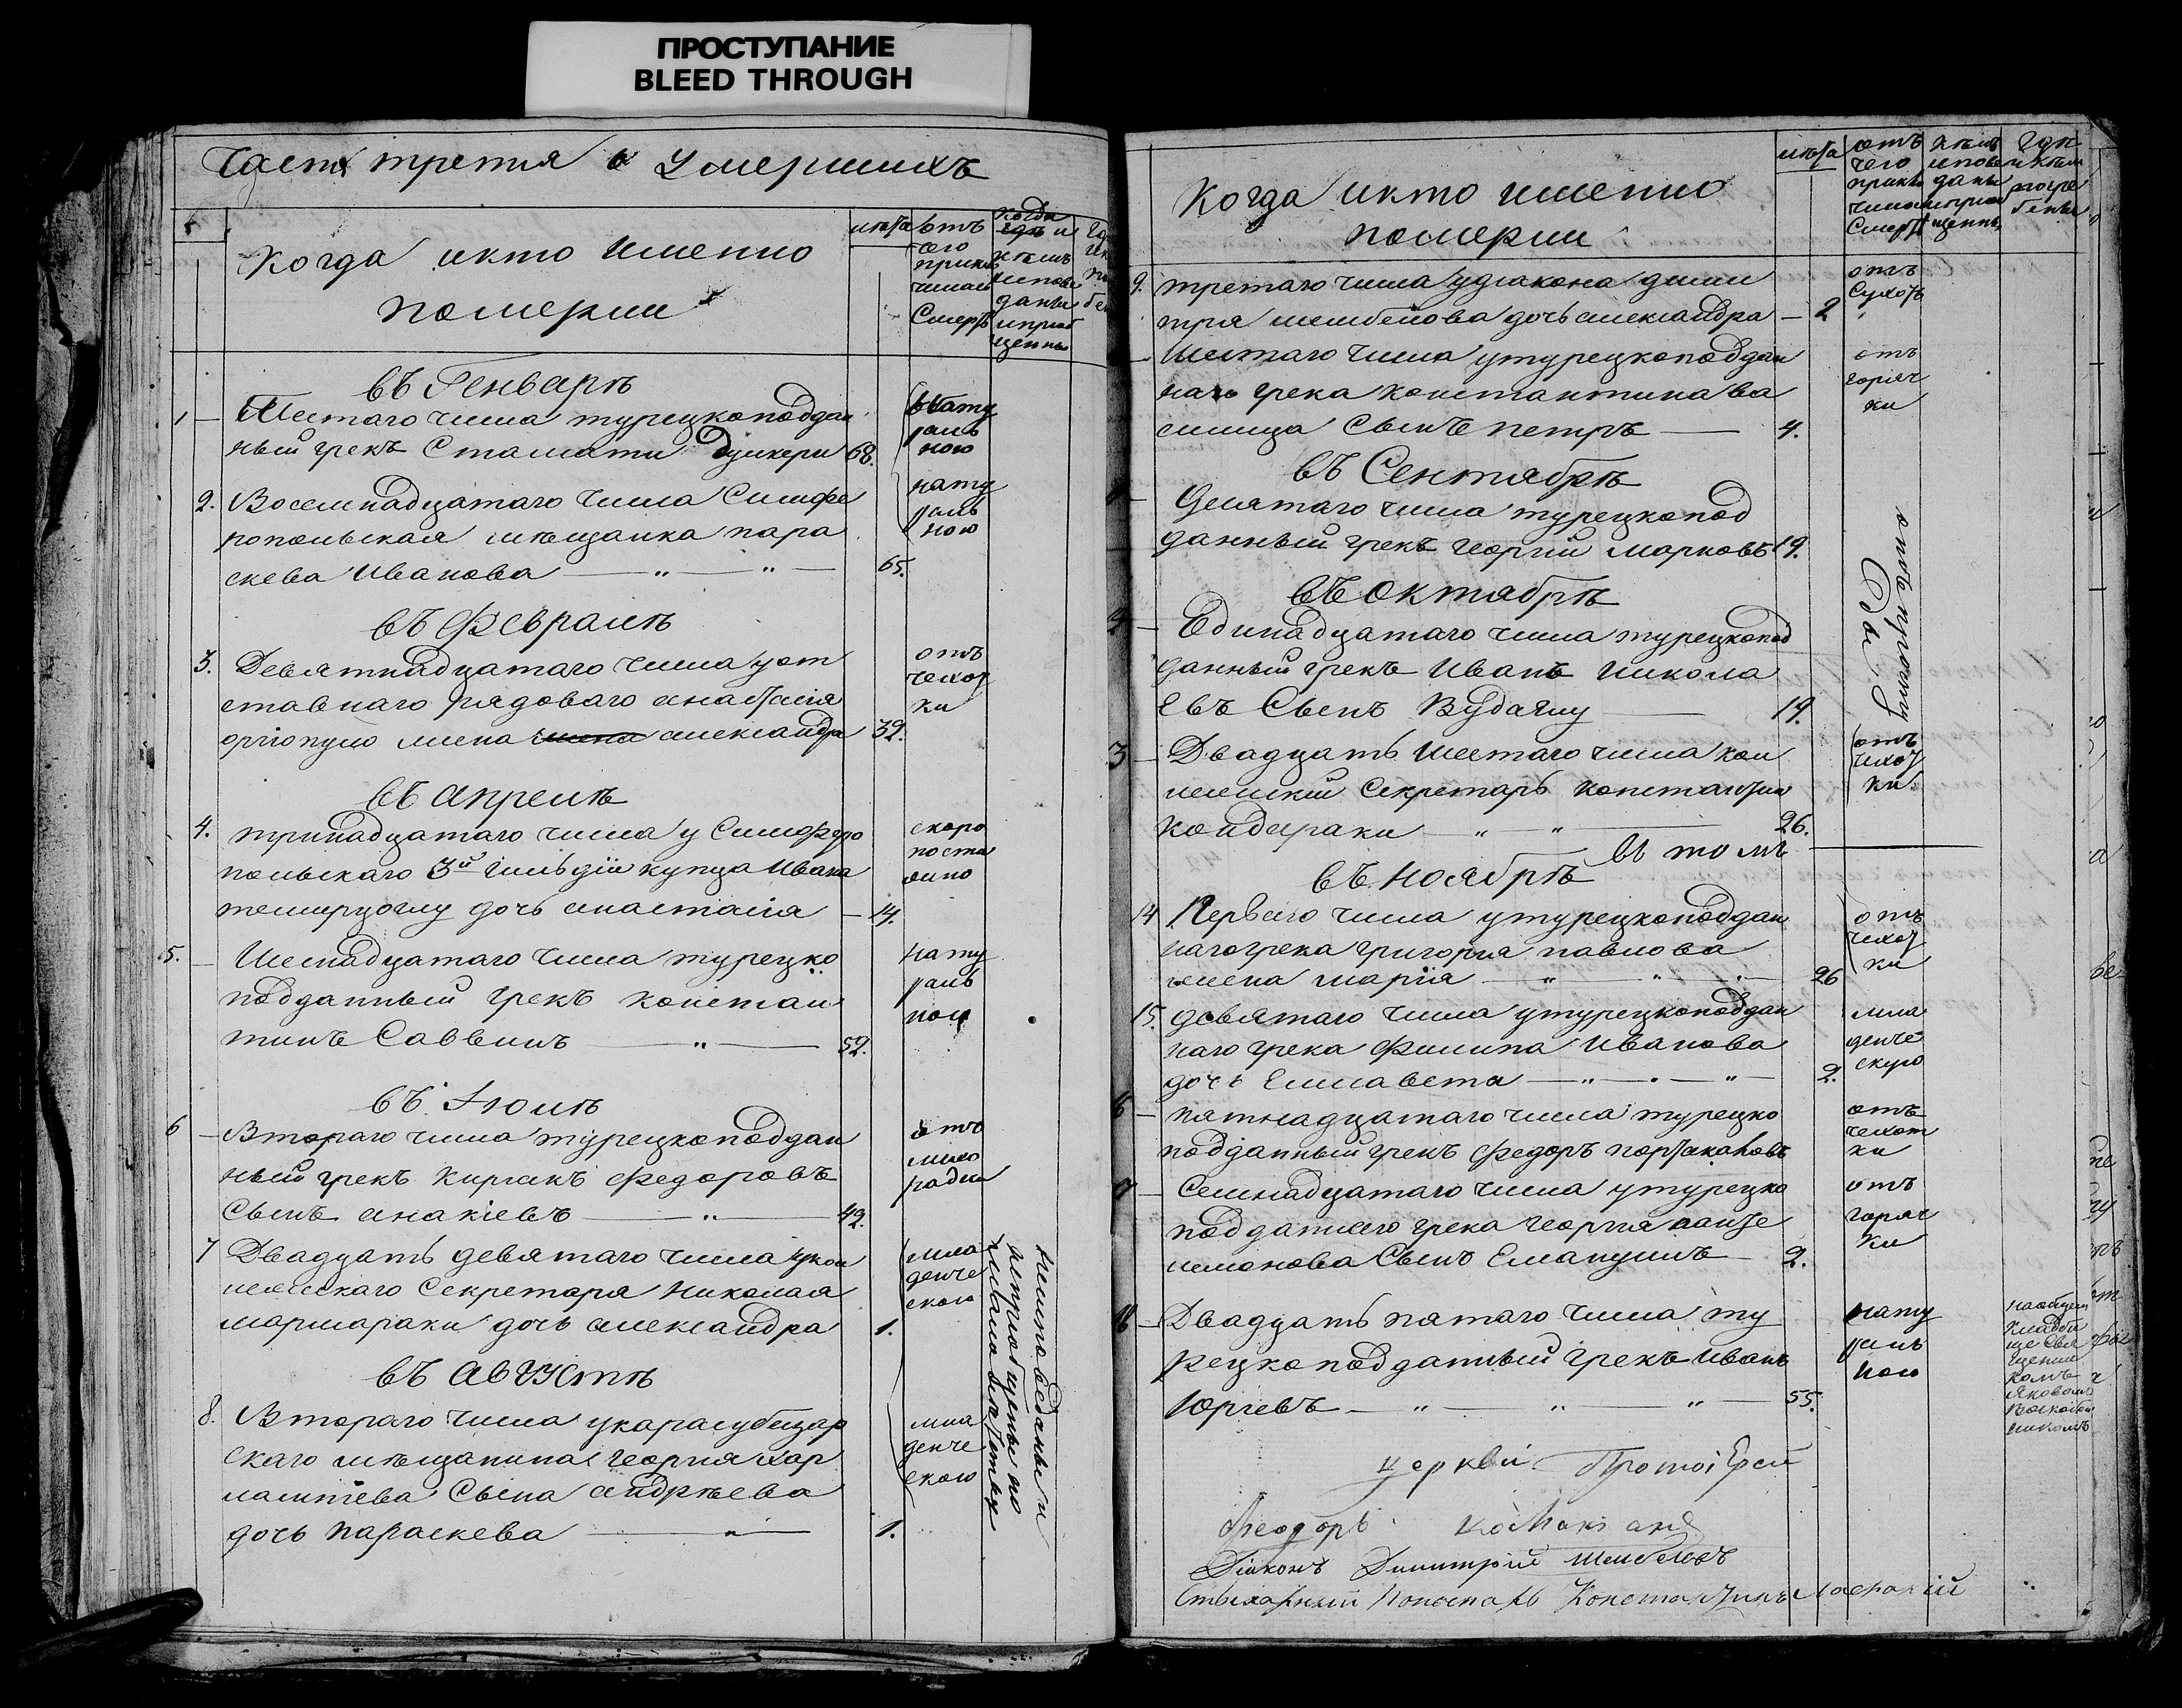 ПРОСТУПАНИЕ
BLEED THROUGH
Часть третія о умершихъ
Когда икто именно
померли
лѣта
отъ
чего
приклю
чилась
Смерть
когда
и
кѣмъ
испове
даны
иприоб
щенны
въ Генварѣ
1 — Шестаго числа турецкоподдан
ный грекъ Стамати 68.
нату
раль
ною
2. Восемнадцатаго числа Симфе
ропольская мѣщанка пара
скева Иванова — „ — „ — 65.
нату
раль
ною
въ Февралѣ
3. Девятнадцатаго числа уот
ставнаго рядоваго
жена александра 39.
отъ
чехот
ки
въ апрелѣ
4. тринадцатаго числа у Симферо
польскаго 3й гильдіи купца Ивана
дочь анастасія — 14.
скоро
поста
жно
5. — Шеснадцатаго числа турецко
подданный грекъ констан
тинъ Саввинъ — „ — 52.
нату
раль
ною
въ Іюлѣ
6 — Втораго числа турецкоподдан
ный грекъ Кирiакъ Федоровъ
Сынъ анакіевъ — „ — 42.
отъ
лихо
радки
7 Двадцать девятаго числа укол
лежскаго Секретаря Николая
мармараки дочь александра 1.
мла
денче
скою
въ августѣ
8. Втораго числа укарасубазар
скаго мѣщанина георгія хар
лампіева Сына андрѣева
дочь параскева — „ — 1.
мла
денче
скою
неисповѣданы и
неприобщены по
Когда икто именно
померли
лѣта
отъ
чего
приклю
чилась
Смерть
кѣмъ
испове
даны
иприоб
щенны
где
икѣм
погре
бены
9. третаго числа удіакона дими
трія шембелова дочь александра — 2
отъ
Сухоть
— Шестаго числа утурецкоподдан
наго грека константина ва
силица Сынъ петръ — 4.
отъ
горяч
ки
въ Сентябрѣ
— Десятаго числа турецкопод
данный грекъ георгій марковъ 19.
въ октябрѣ
— Единадцатаго числа турецкопод
данный грекъ Иванъ Никола
евъ Сынъ Вудаглу — 19.
отъ простуды
3 — Двадцать шестаго числа кол
лежскій Секретарь константин
кондараки — „ „ — 26.
отъ
чехот
ки
въ томъ
въ ноябрѣ
14 Перваго числа утурецкоподдан
наго грека григорія павлова
жена марія — „ — 26
отъ
чехот
ки
15. девятаго числа утурецкоподдан
наго грека филипа Иванова
дочь Елисавета — „ — „ — 2.
мла
денче
скую
6 — пятнадцатаго числа турецко
подданный грекъ федоръ
отъ
чехот
ки
7 — Семнадцатаго числа утурецко
подданаго грека георгія панте
лемонова Сынъ Емануилъ — 2.
отъ
горяч
ки
18 — Двадцать пятаго числа ту
рецкоподданный грекъ Иванъ
Юріевъ — „ — „ — „ — 55.
нату
раль
ною
наобщем
кладби
ще Свя
щенни
комъ
Яковомъ
церкви Протоіерей
Феодоръ
Діаконъ Димитрій Шембеловъ
Стихарный Пономарь Константинъ